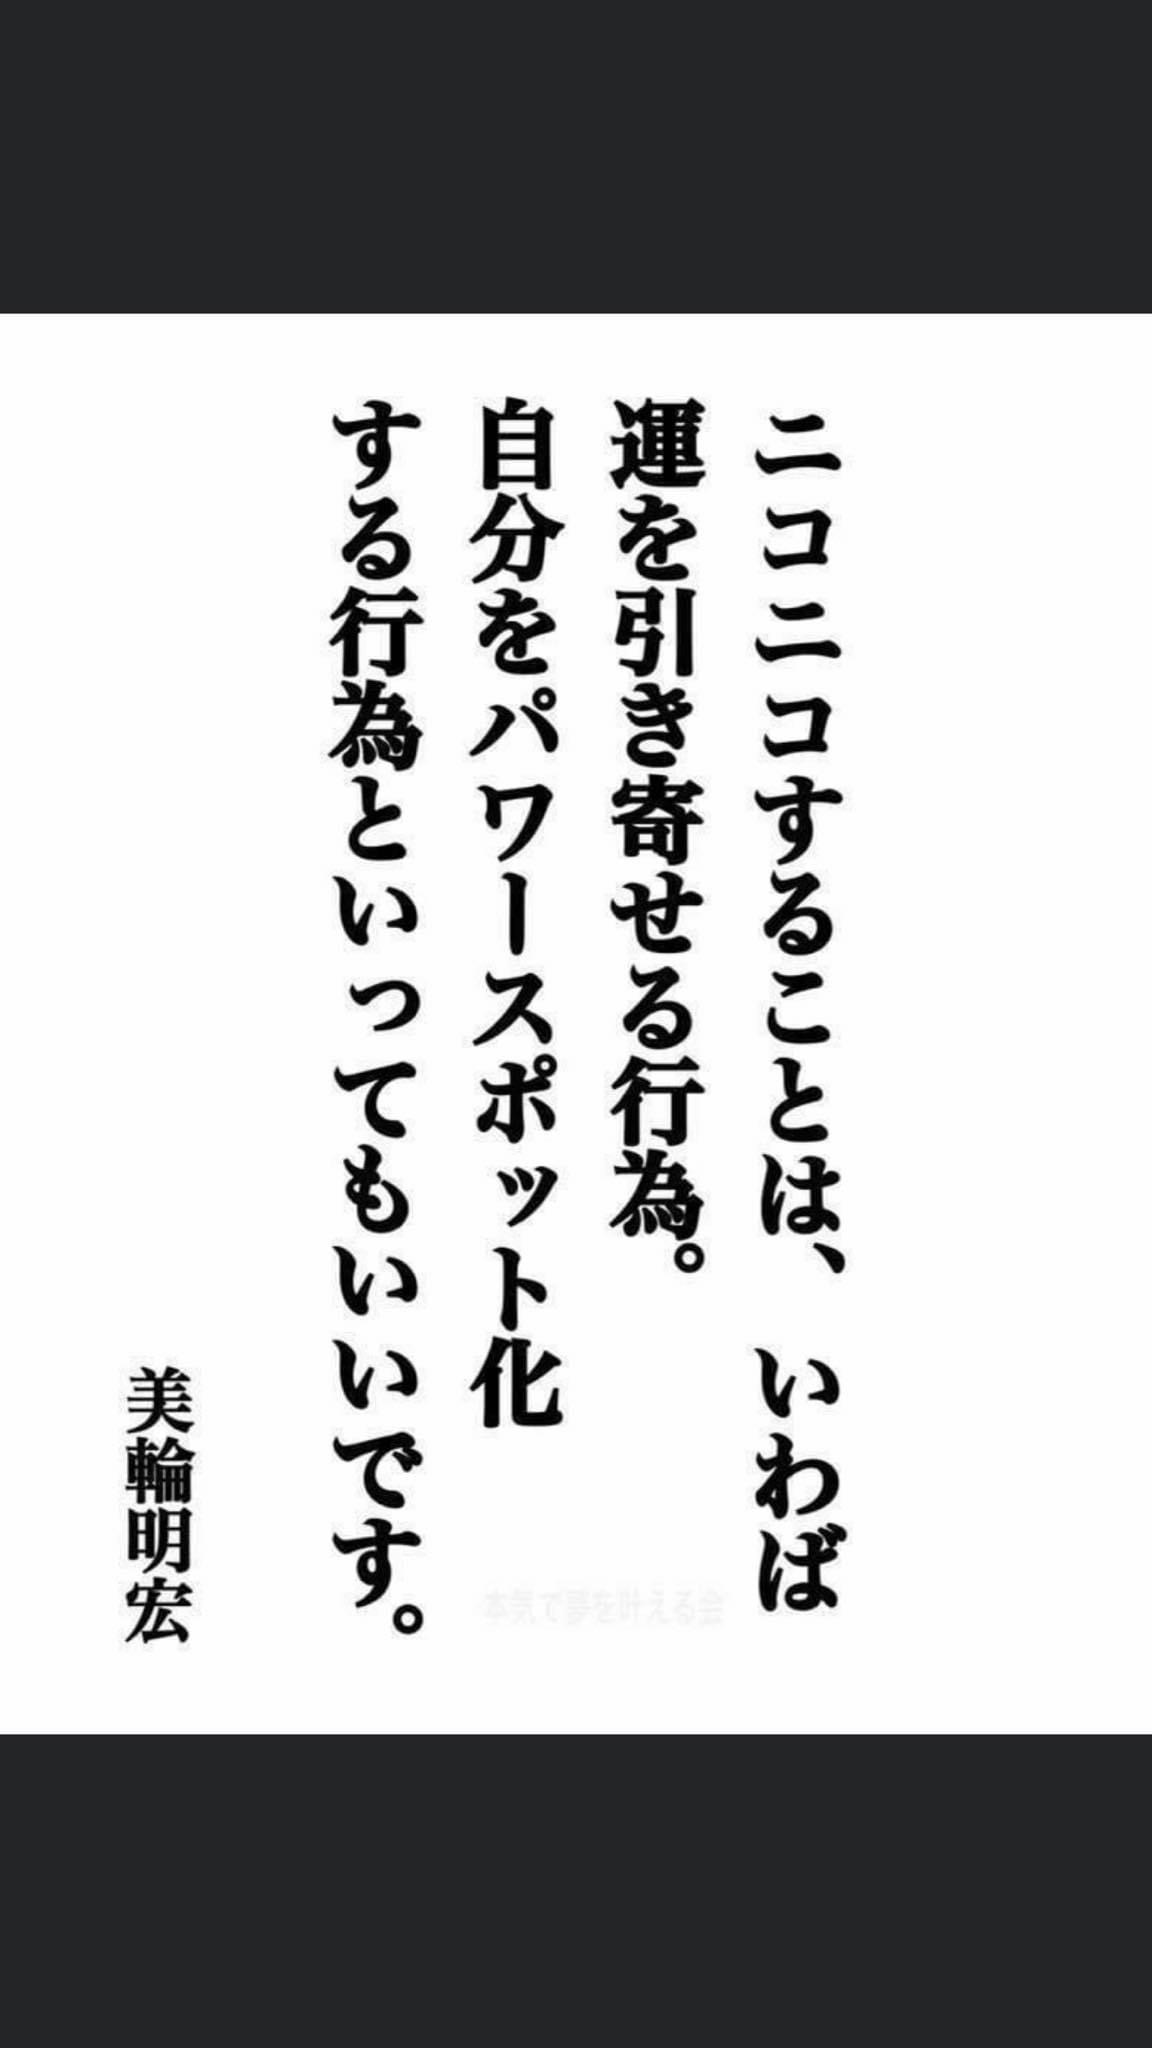 ニコニコすることは、　いわば
運を引き寄せる行為。
自分をパワースポット化
する行為といってもいいです。
美輪明宏
本気で夢を叶える会